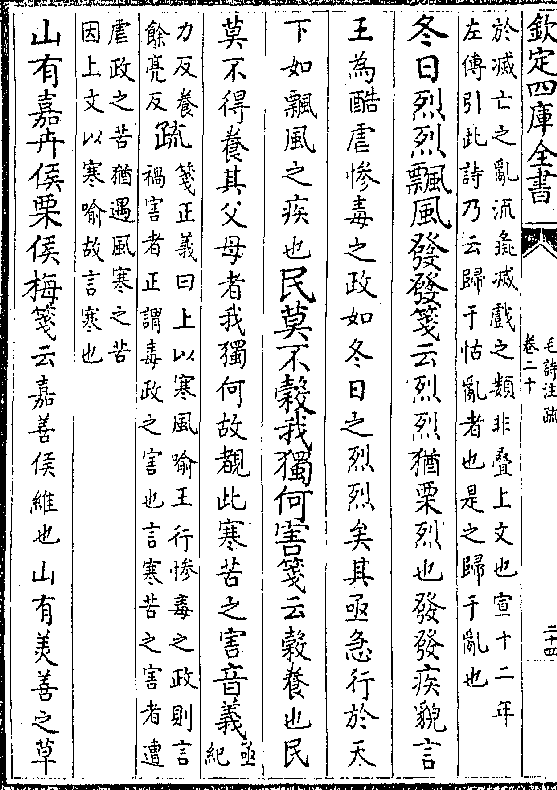 欽定四庫全書
毛詩注疏
卷二十
二十四
於滅亡之亂流彘滅戲之類非疊上文也宣十二年
左傳引此詩乃云歸于怙亂者也是之歸于亂也
冬日烈烈飄風發發箋云烈烈猶栗烈也發發疾貌言
王為酷虐慘毒之政如冬日之烈烈矣其亟急行於天
下如飄風之疾也民莫不穀我獨何害箋云穀養也民
莫不得養其父母者我獨何故覩此寒苦之害音義亟
紀
力反養
餘亮反疏箋正義曰上以寒風喻王行慘毒之政則言
禍害者正謂毒政之害也言寒苦之害者遭
虐政之苦猶遇風寒之苦
因上文以寒喻故言寒也
山有嘉卉侯栗侯梅箋云嘉善侯維也山有美善之草